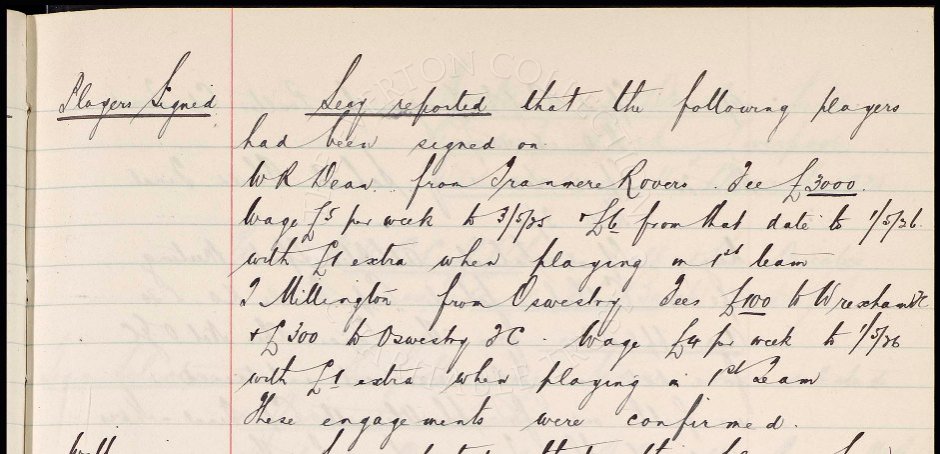 Players Signed
Secy reported that the following players
had been signed on.
W R Dean. from Tranmere Rovers. Fee £3000.
Wage £5 per week to 3/5/25 + £6 from that date to 1/5/26.
with £1 extra when playing in 1st team
J Millington from Oswestry, Fees £100 to Wrexham FC
+ £300 to Oswestry FC. Wage £4 per week to 1/5/26
with £1 extra when playing in 1st Team
These engagements were confirmed.